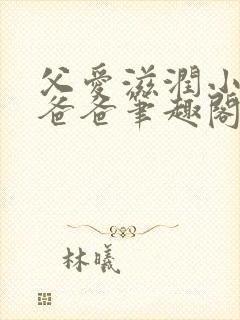 父愛滋潤小
爸爸筆趣閣
林曦